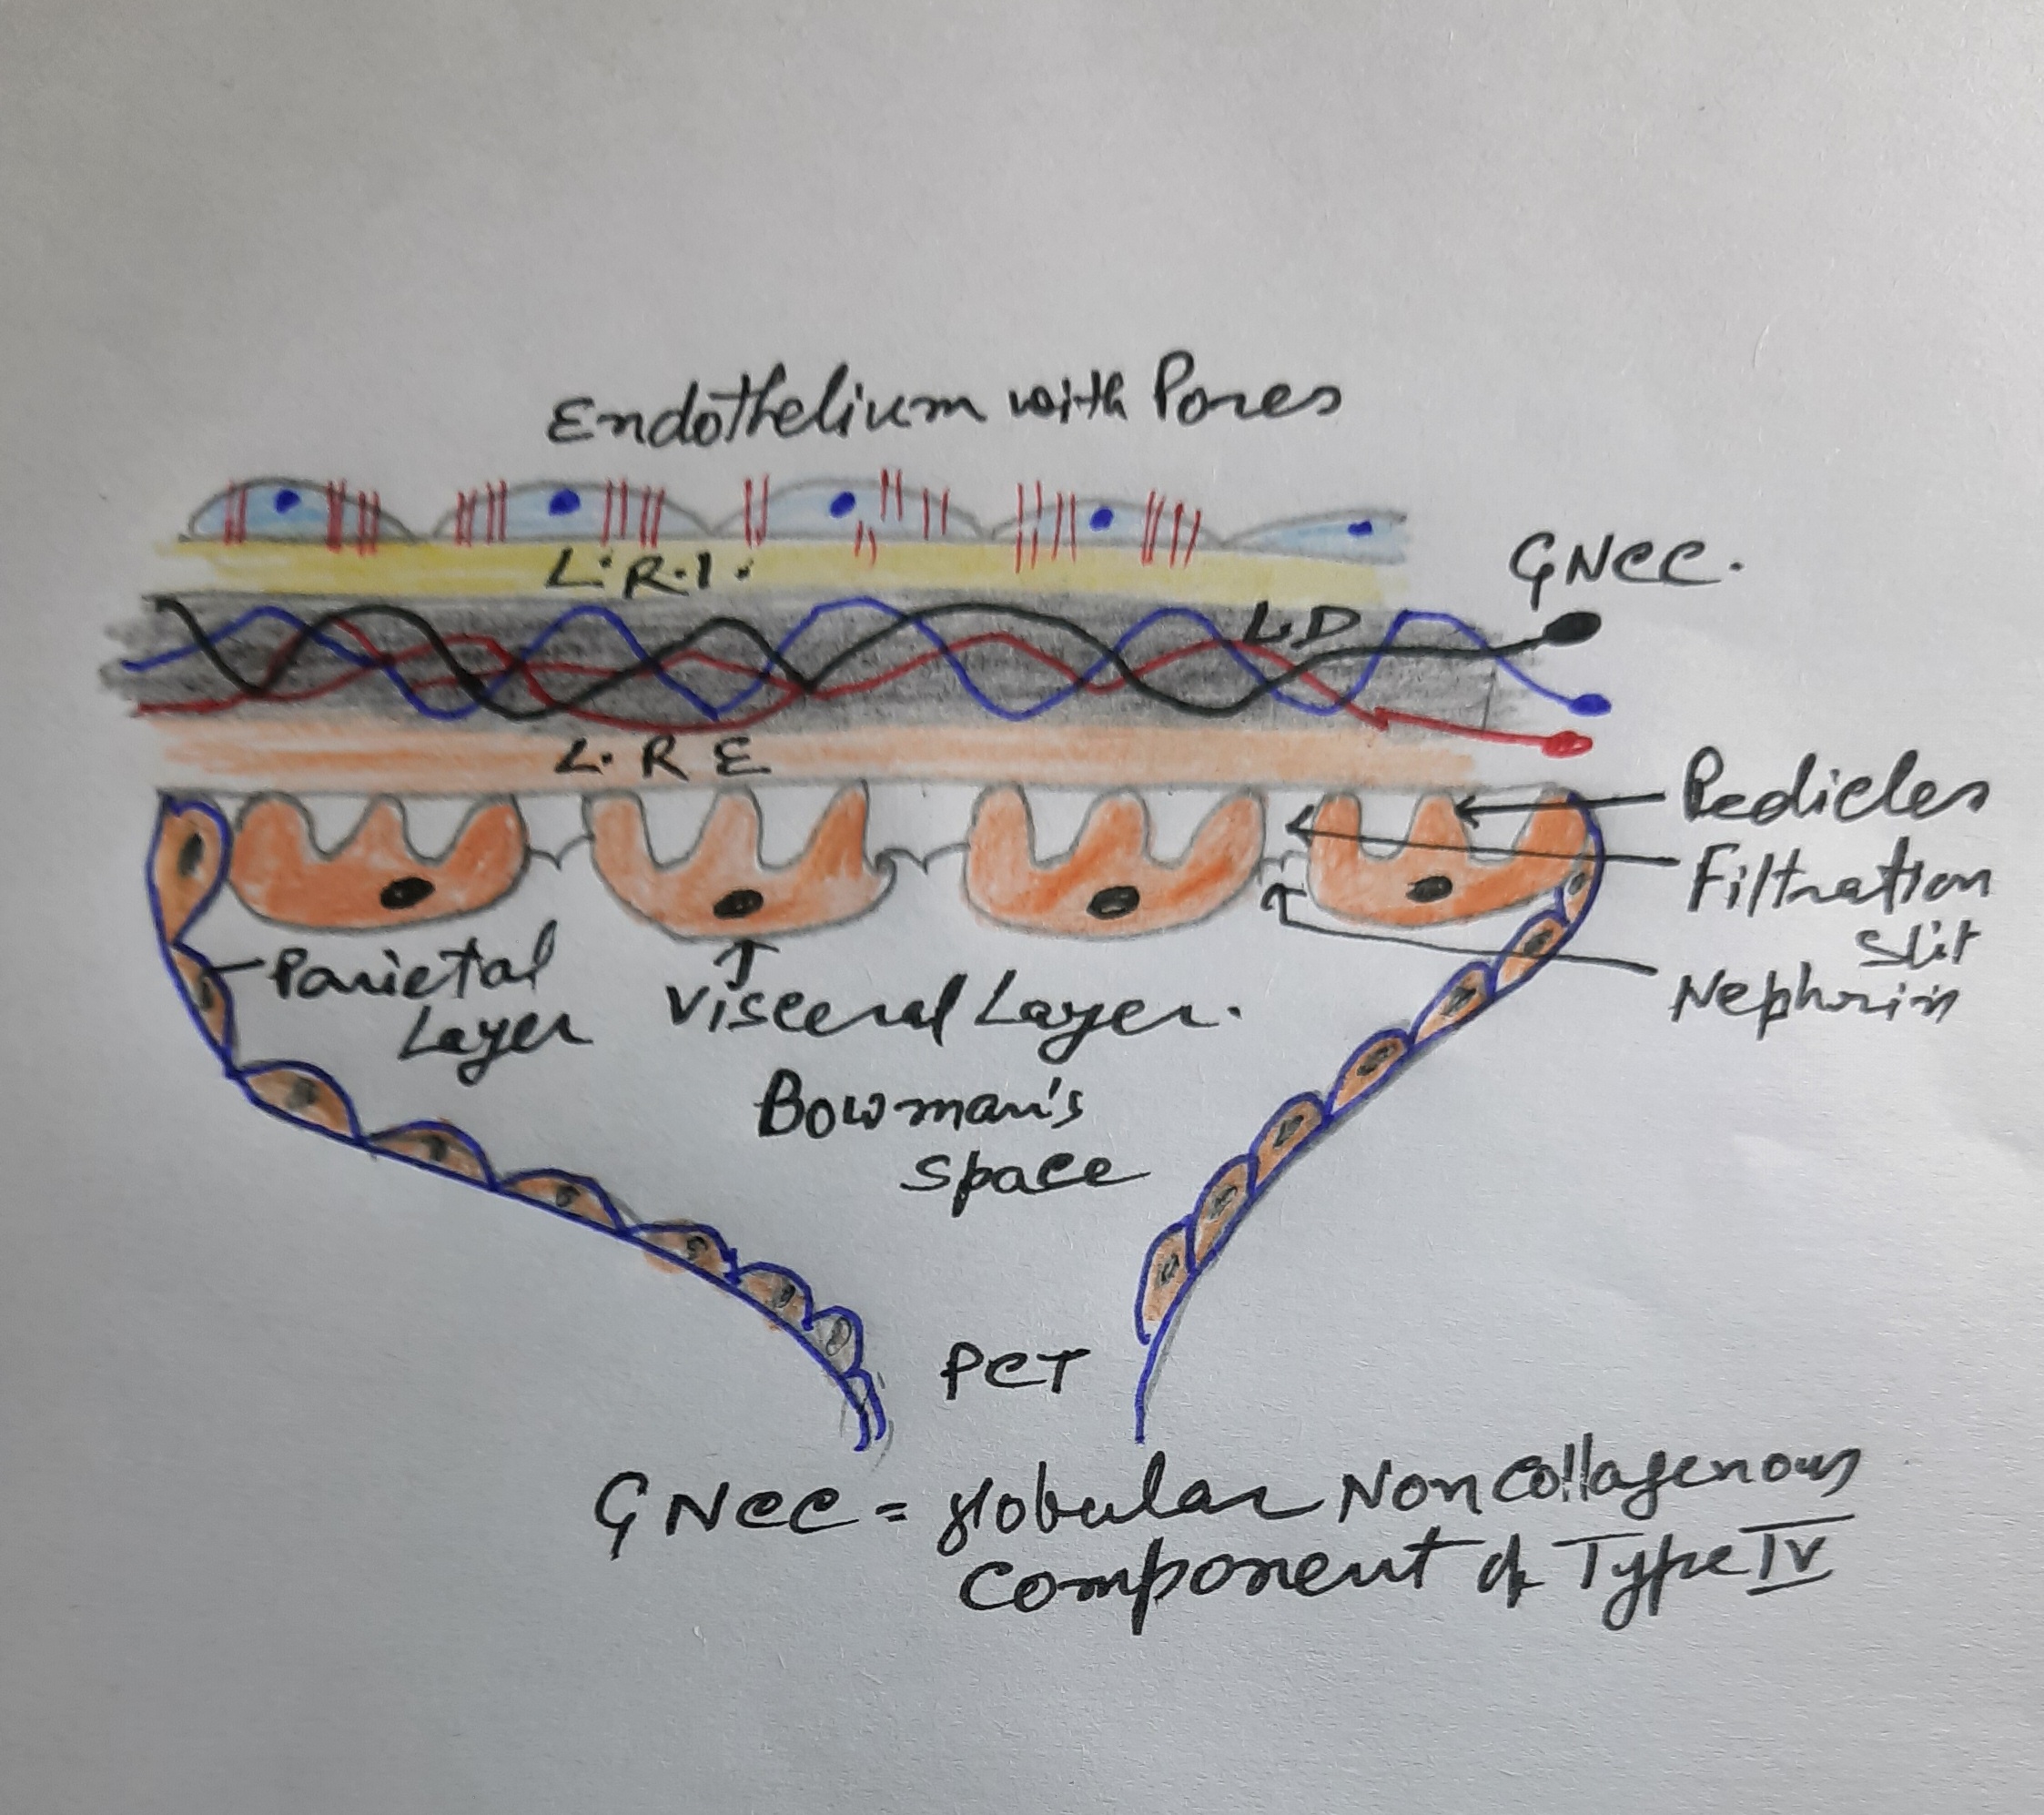 Endothelium with Pores
L.R.I.
GNCC.
LD
L.R E
Pedicles
Filtration
Slit
Nephrin
Parietal
Layer
Visceral Layer.
Bowman's
space
PCT
GNCC = globular Non Collagenous
Component of Type IV